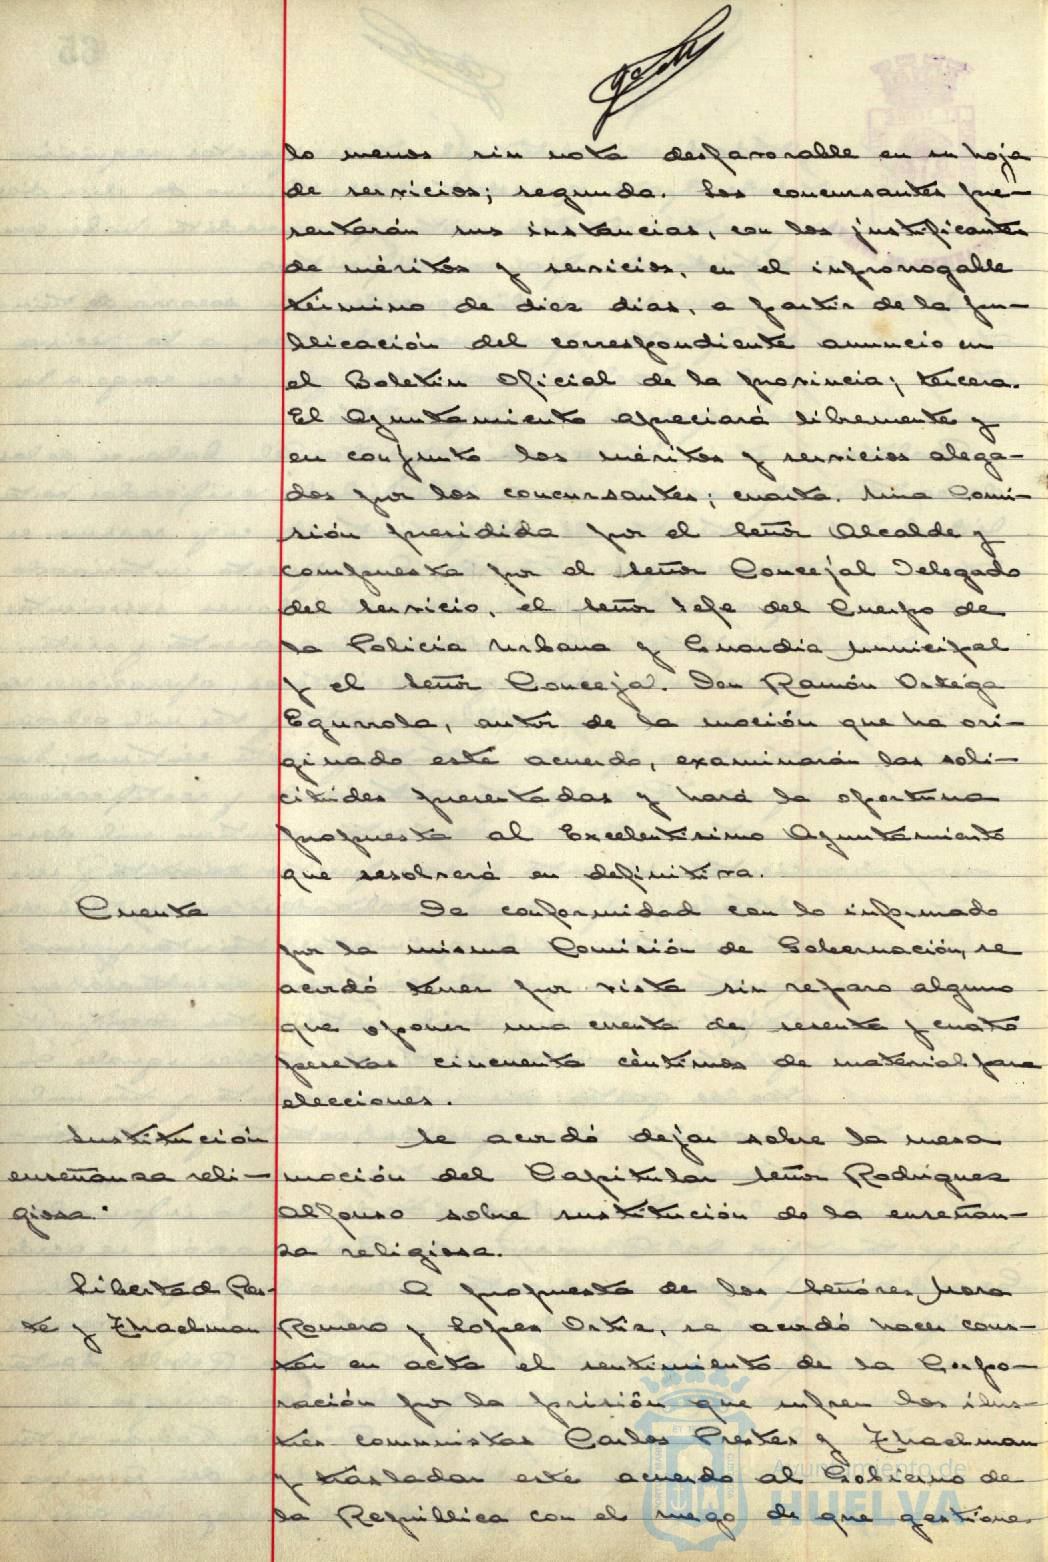 lo menos sin nota desfavorable en su hoja
de servicios; segunda. Los concursantes pre-
sentarán sus instancias, con los justificantes
de méritos y servicios, en el improrrogable
término de diez días, a partir de la pu-
blicación del correspondiente anuncio en
el Boletín Oficial de la provincia; tercera.
El Ayuntamiento apreciará libremente y
en conjunto los méritos y servicios alega-
dos por los concursantes; cuarta. Una Comi-
sión presidida por el Señor Alcalde y
compuesta por el Señor Concejal Delegado
del Servicio, el Señor Jefe del Cuerpo de
la Policía Urbana y Guardia Municipal
y el Señor Concejal Don Ramón Ortega
Egurrola, autor de la moción que ha ori-
ginado este acuerdo, examinarán las soli-
citudes presentadas y hará la oportuna
propuesta al Excelentísimo Ayuntamiento
que resolverá en definitiva.
Cuenta
De conformidad con lo informado
por la misma Comisión de Gobernación, se
acordó tener por vista sin reparo alguno
que oponer una cuenta de sesenta y cuatro
pesetas cincuenta céntimos de material para
elecciones.
Sustitución
enseñanza reli-
giosa.
Se acordó dejar sobre la mesa
moción del Capitular Señor Rodríguez
Alfonso sobre sustitución de la enseñan-
za religiosa.
Libertad Pres-
te y Thaelman
A propuesta de los Señores Mora
Romero y López Ortiz, se acordó hacer cons-
tar en acta el sentimiento de la Corpo-
ración por la prisión que sufren los ilus-
tres comunistas Carlos Prestes y Thaelman
y trasladar este acuerdo al Gobierno de
la República con el ruego de que gestione
Ayuntamiento de
HUELVA